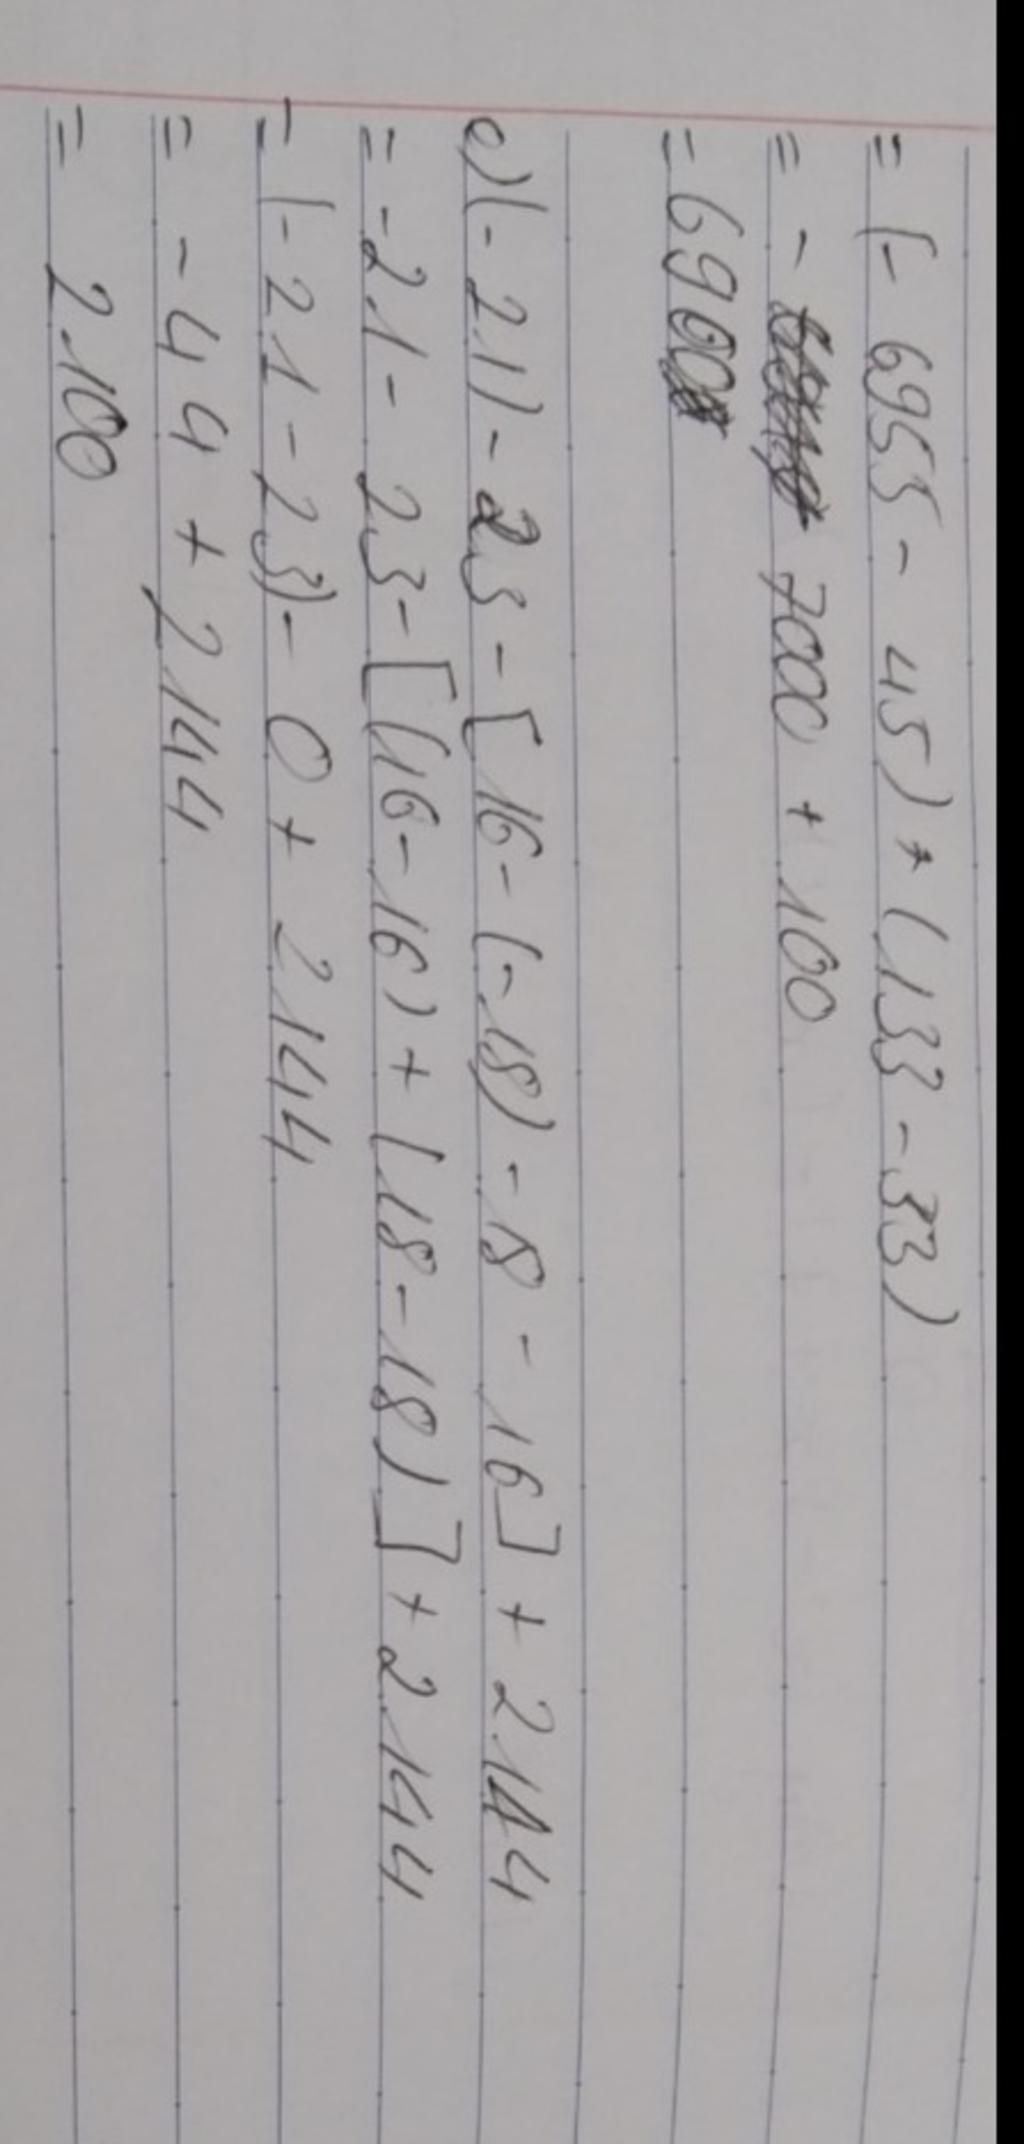 = (- 6955 - 45) + (133 - 33)
= - 7000 + 100
= 6900
e) (- 21) - 23 - [16 - (-18) - 18 - 16] + 2144
= - 21 - 23 - [(16 - 16) + (18 - 18)] + 2144
= (- 21 - 23) - 0 + 2144
= - 44 + 2144
= 2100